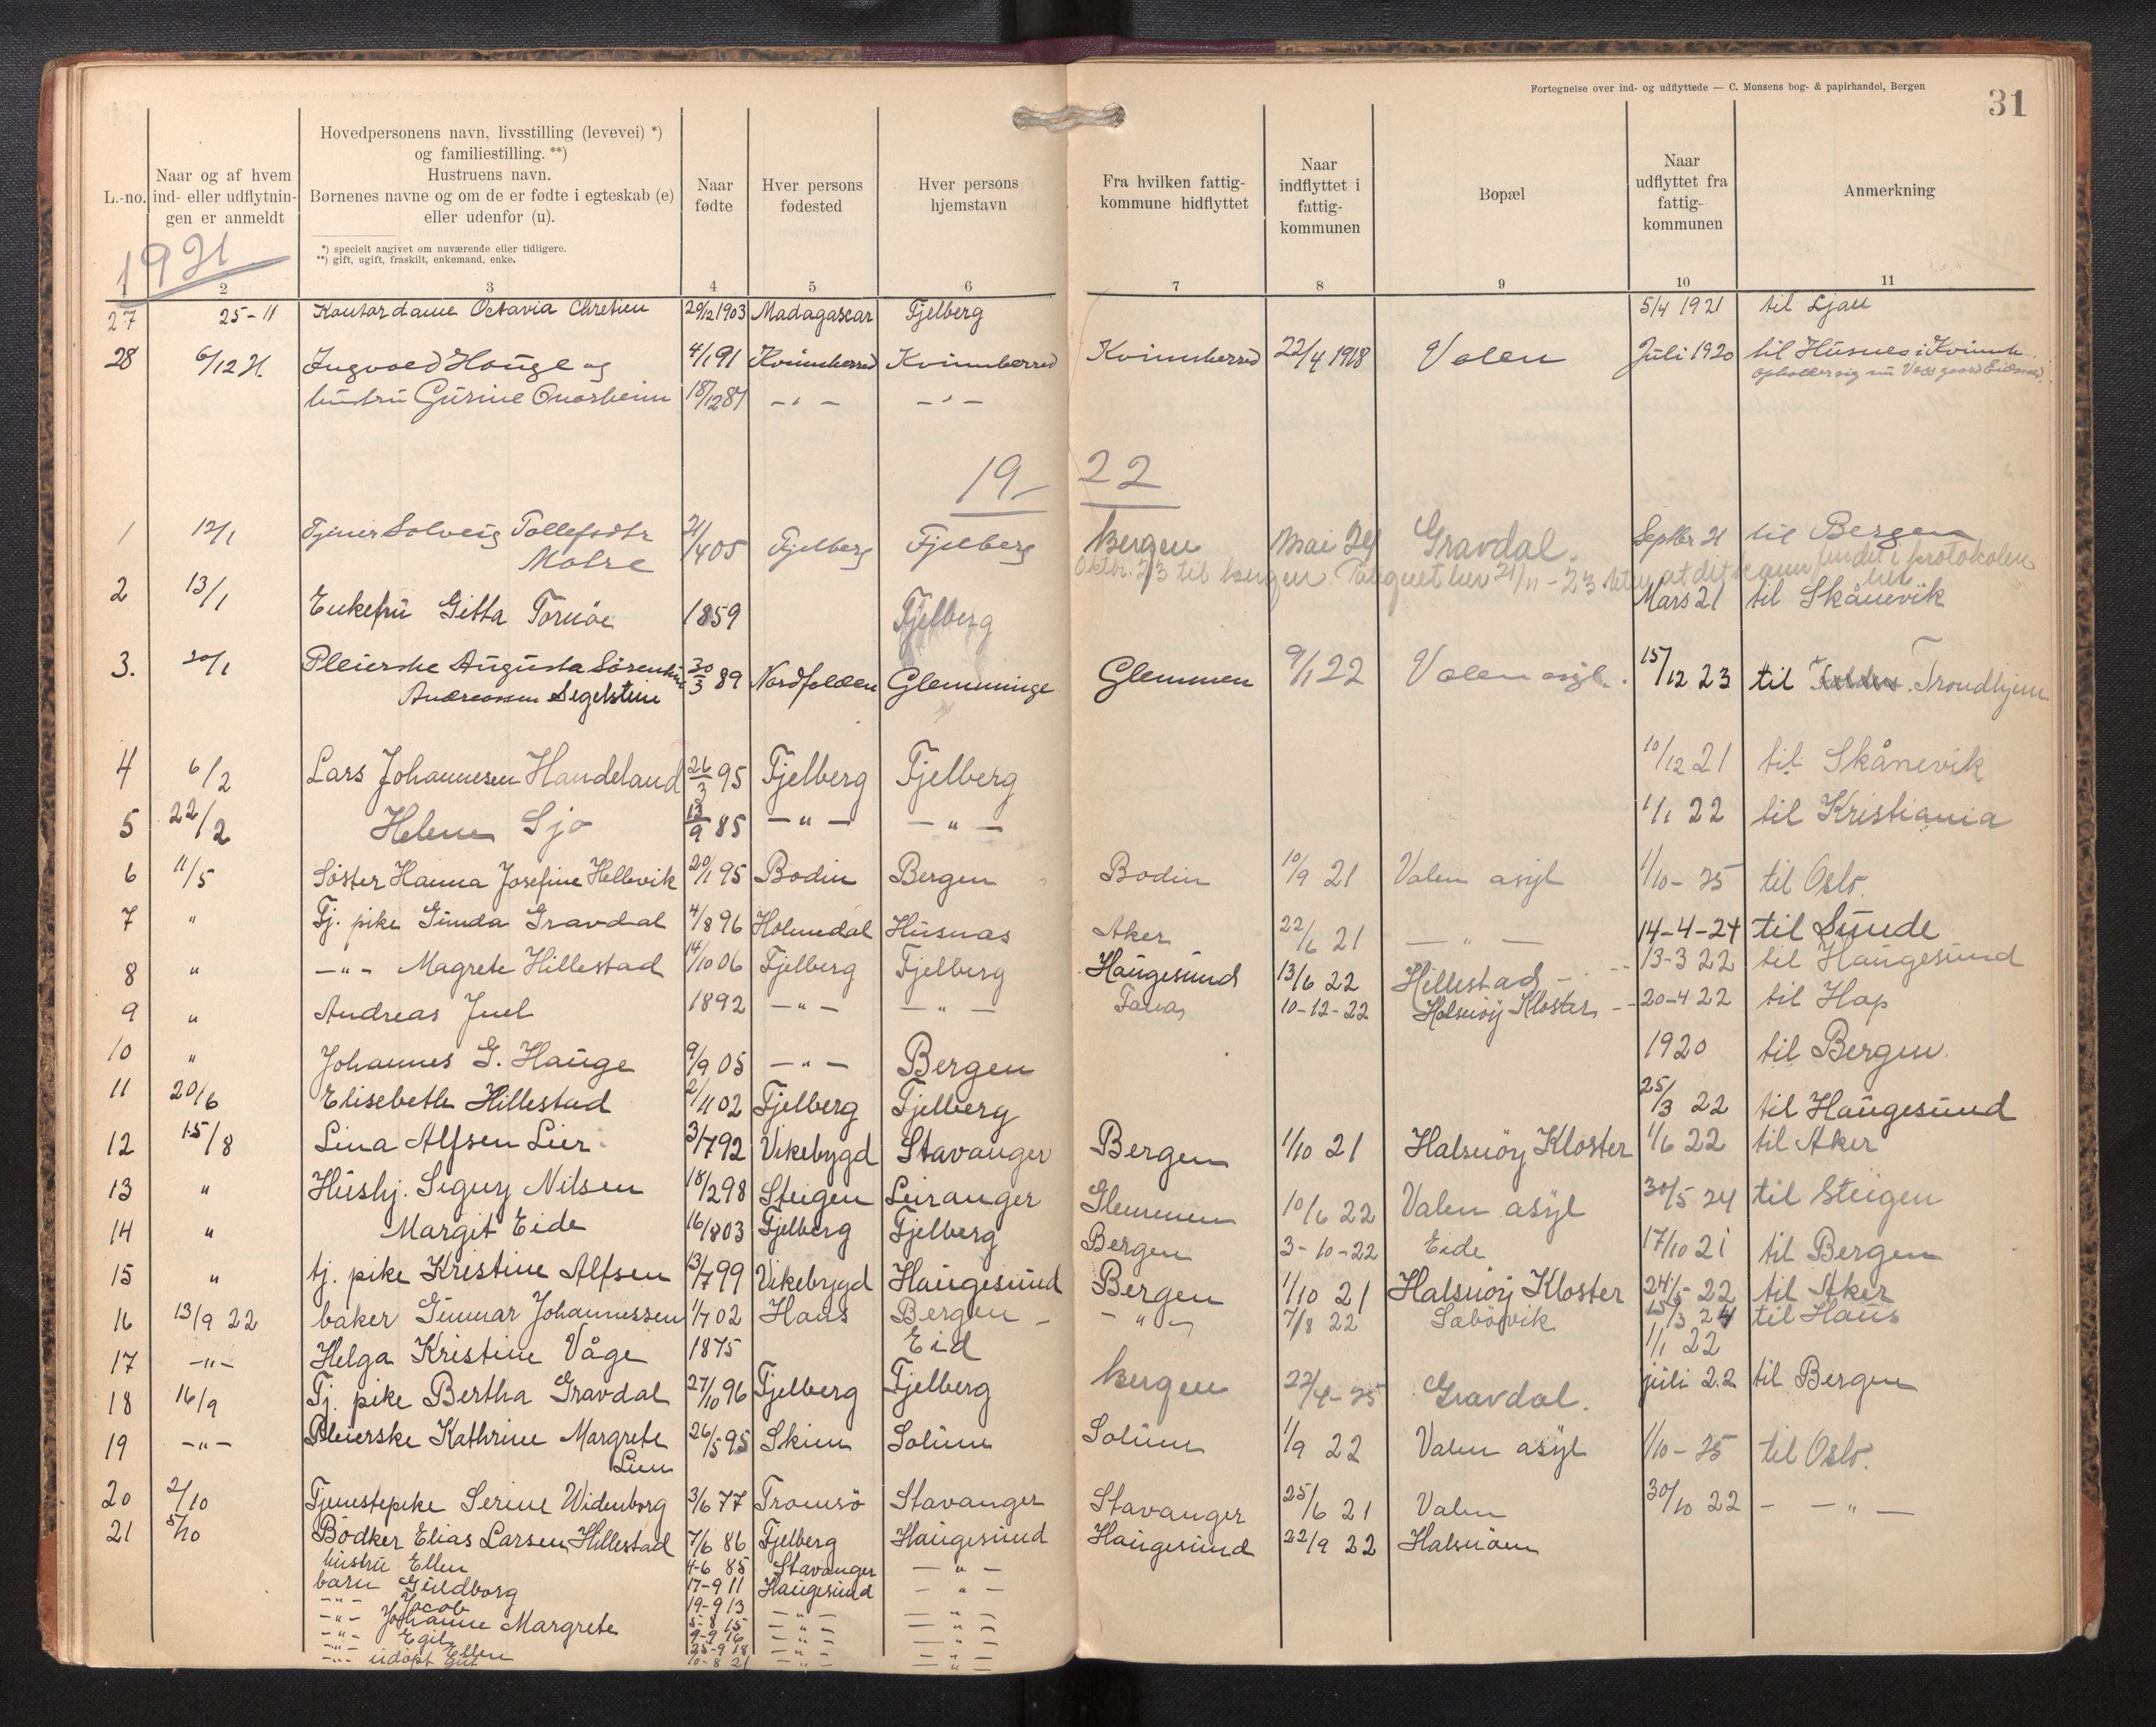 Fortegnelse over ind- og udflyttede — C. Monsens bog- & papirhandel, Bergen
31
L.-no.
Naar og af hvem ind- eller udflytningen er anmeldt
Hovedpersonens navn, livsstilling (levevei) *) og familiestilling. **)
Hustruens navn.
Børnenes navne og om de er fødte i egteskab (e) eller udenfor (u).
*) specielt angivet om nuværende eller tidligere.
**) gift, ugift, fraskilt, enkemand, enke.
Naar fødte
Hver persons fødested
Hver persons hjemstavn
Fra hvilken fattigkommune hidflyttet
Naar indflyttet i fattigkommunen
Bopæl
Naar udflyttet fra fattigkommunen
Anmerkning
1921
1 2 3 4 5 6 7 8 9 10 11
27 25-11 Kontordame Octavia Chretien 29/2 1903 Madagascar Fjelberg 5/4 1921 til Ljan
28 6/12 21. Ingvald Hauge og 4/1 91 Kvinnherred Kvinnherred Kvinnherred 22/4 1918 Valen Juli 1920 til Husnes i Kvinnh.
opholder sig nu
hustru Gurine Onarheim 18/12 87 -"- -"-
19-22
1 12/1 Tjener Solveig Tollefsdtr 21/4 05 Fjelberg Fjelberg Bergen Mai 24 Gravdal. Septbr 21 til Bergen
Matre
Oktbr. 23 til Bergen. 21/11-23 at dit navn findes i protokolen her
2 13/1 Enkefru Gitta Tornøe 1859 Fjelberg Mars 21 til Skånevik
3. 20/1 Pleierske Augusta Sørentine 30/3 89 Nordfolden Glemminge Glemmen 9/1 22 Valen asyl. 15/12 23 til Trondhjem
Andreassen Segelstein
4 6/2 Lars Johannesen Handeland 26/3 95 Fjelberg Fjelberg 10/12 21 til Skånevik
5 22/2 Helene Sjo 13/9 85 -"- -"- 1/1 22 til Kristiania
6 11/5 Søster Hanna Josefine Hellevik 20/1 95 Bodin Bergen Bodin 10/9 21 Valen asyl 1/10-25 til Oslo.
7 " Tj. pike Gunda Gravdal 4/8 96 Holmedal Husnas Aker 22/6 21 -"- 14-4-24 til Sunde
8 " -"- Magrete Hillestad 14/10 06 Fjelberg Fjelberg Haugesund 13/6 22 Hillestad - 13-3 22 til Haugesund
9 " Andreas Juel 1892 -"- -"- Fana 10-12-22 Halsnöy Kloster - 20-4 22 til Hop
10 " Johannes G. Hauge 9/9 05 -"- Bergen 1920 til Bergen.
11 20/6 Elisebeth Hillestad 2/11 02 Fjelberg Fjelberg 25/3 22 til Haugesund
12 15/8 Lina Alfsen Lier 3/7 92 Vikebygd Stavanger Bergen 1/10 21 Halsnöy Kloster 1/6 22 til Aker
13 " Hushj. Signy Nilsen 18/2 98 Steigen Leiranger Glemmen 10/6 22 Valen asyl 30/5 24 til Steigen
14 " Margit Eide 16/8 03 Fjelberg Fjelberg Bergen 3-10-22 Eide 17/10 21 til Bergen
15 " tj. pike Kristine Alfsen 13/7 99 Vikebygd Haugesund Bergen 1/10 21 Halsnöy Kloster 24/5 22 til Aker
16 13/9 22 baker Gunnar Johannessen 1/7 02 Haus Bergen - -"- 7/8 22 Sæbövik 15/3 24 til Haus
17 -"- Helga Kristine Våge 1875 Eid 1/1 22
18 16/9 Tj. pike Bertha Gravdal 27/10 96 Fjelberg Fjelberg Bergen 22/4-25 Gravdal. juli 22 til Bergen
19 -"- Pleierske Kathrine Margrete 26/5 95 Skien Solum Solum 1/9 22 Valen asyl 1/10-25 til Oslo.
Lien
20 2/10 Tjenstepike Serine Widenborg 3/6 77 Tromsö Stavanger Stavanger 25/6 21 Valen 30/10 22 - -"-
21 5/10 Bödker Elias Larsen Hillestad 7/6 86 Fjelberg Haugesund Haugesund 22/9 22 Halsnöen
hustru Ellen 4-6 85 Stavanger -"-
barn Guldborg 17-9 11 Haugesund -"-
-"- Jacob 19-9 13 -"- -"-
-"- Johanne Margrete 5-8 15 -"- -"-
-"- Egil 9-9 16 -"- -"-
-"- Ellen 25-9 18 -"- -"-
-"- udöpt gut 10-8 21 -"- -"-